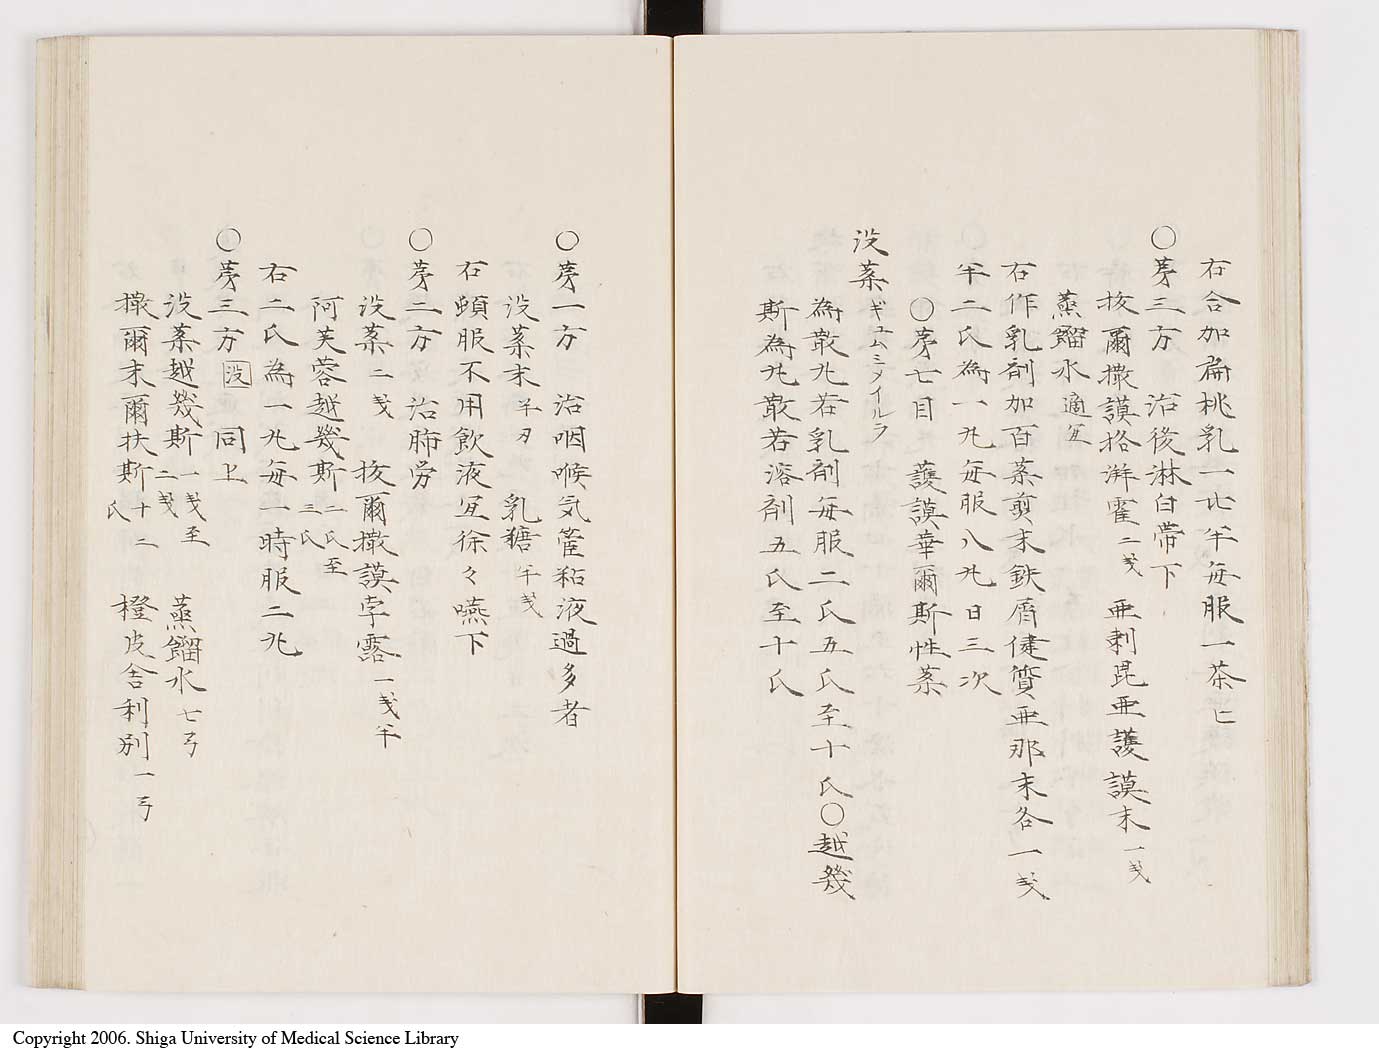 右合加扁桃乳一七半毎服一茶匕
〇第三方　治後淋白帯下
抜爾撒謨格湃霍二戔　亜剌毘亜護謨末一戔
蒸餾水適宜
右作乳剤加百薬煎末鉄屑健質亜那末各一戔
半二氏為一丸毎服八丸日三次
〇第七目　護謨華爾斯性薬
没薬ギュムミメイルラ
為散丸若乳剤毎服二氏五氏至十氏〇越幾
斯為丸散若溶剤五氏至十氏
〇第一方　治咽喉気管粘液過多者
没薬末半刄　乳糖半戔
右頓服不用飲液宜徐々嚥下
〇第二方　治肺労
没薬二戔　抜爾撒謨孛露一戔半
阿芙蓉越幾斯二氏至三氏
右二氏為一丸毎一時服二丸
〇第三方 没 同上
没薬越幾斯一戔至二戔　蒸餾水七弓
撒爾末爾扶斯十二氏　橙皮舎利別一弓
Copyright 2006. Shiga University of Medical Science Library